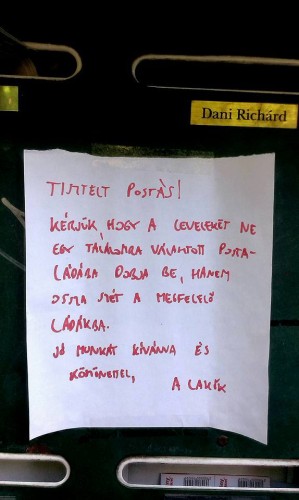 Dani Richárd
TISZTELT POSTÁS!
KÉRJÜK, HOGY A LEVELEKET NE
EGY TALÁLOMRA VÁLASZTOTT POSTA-
LÁDÁBA DOBJA BE, HANEM
OSSZA SZÉT A MEGFELELŐ
LÁDÁKBA.
JÓ MUNKÁT KÍVÁNVA ÉS
KÖSZÖNETTEL,
A LAKÓK